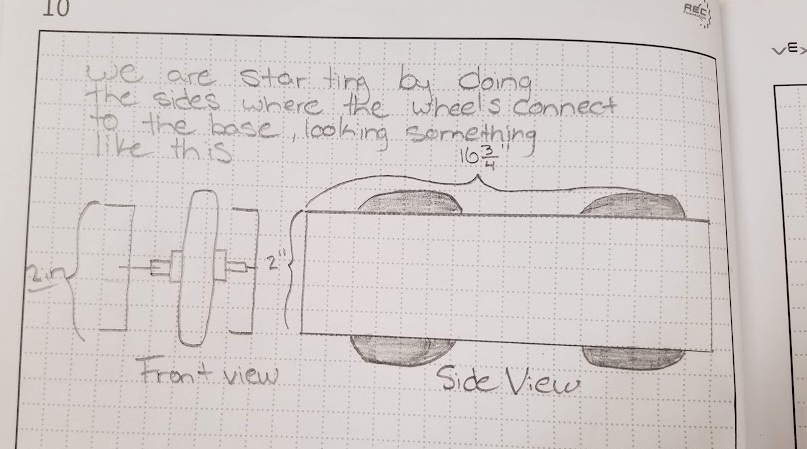 10
REC
we are starting by doing
the sides where the wheels connect
to the base, looking something
like this
16 3/4"
2in
2"
Front view
Side View